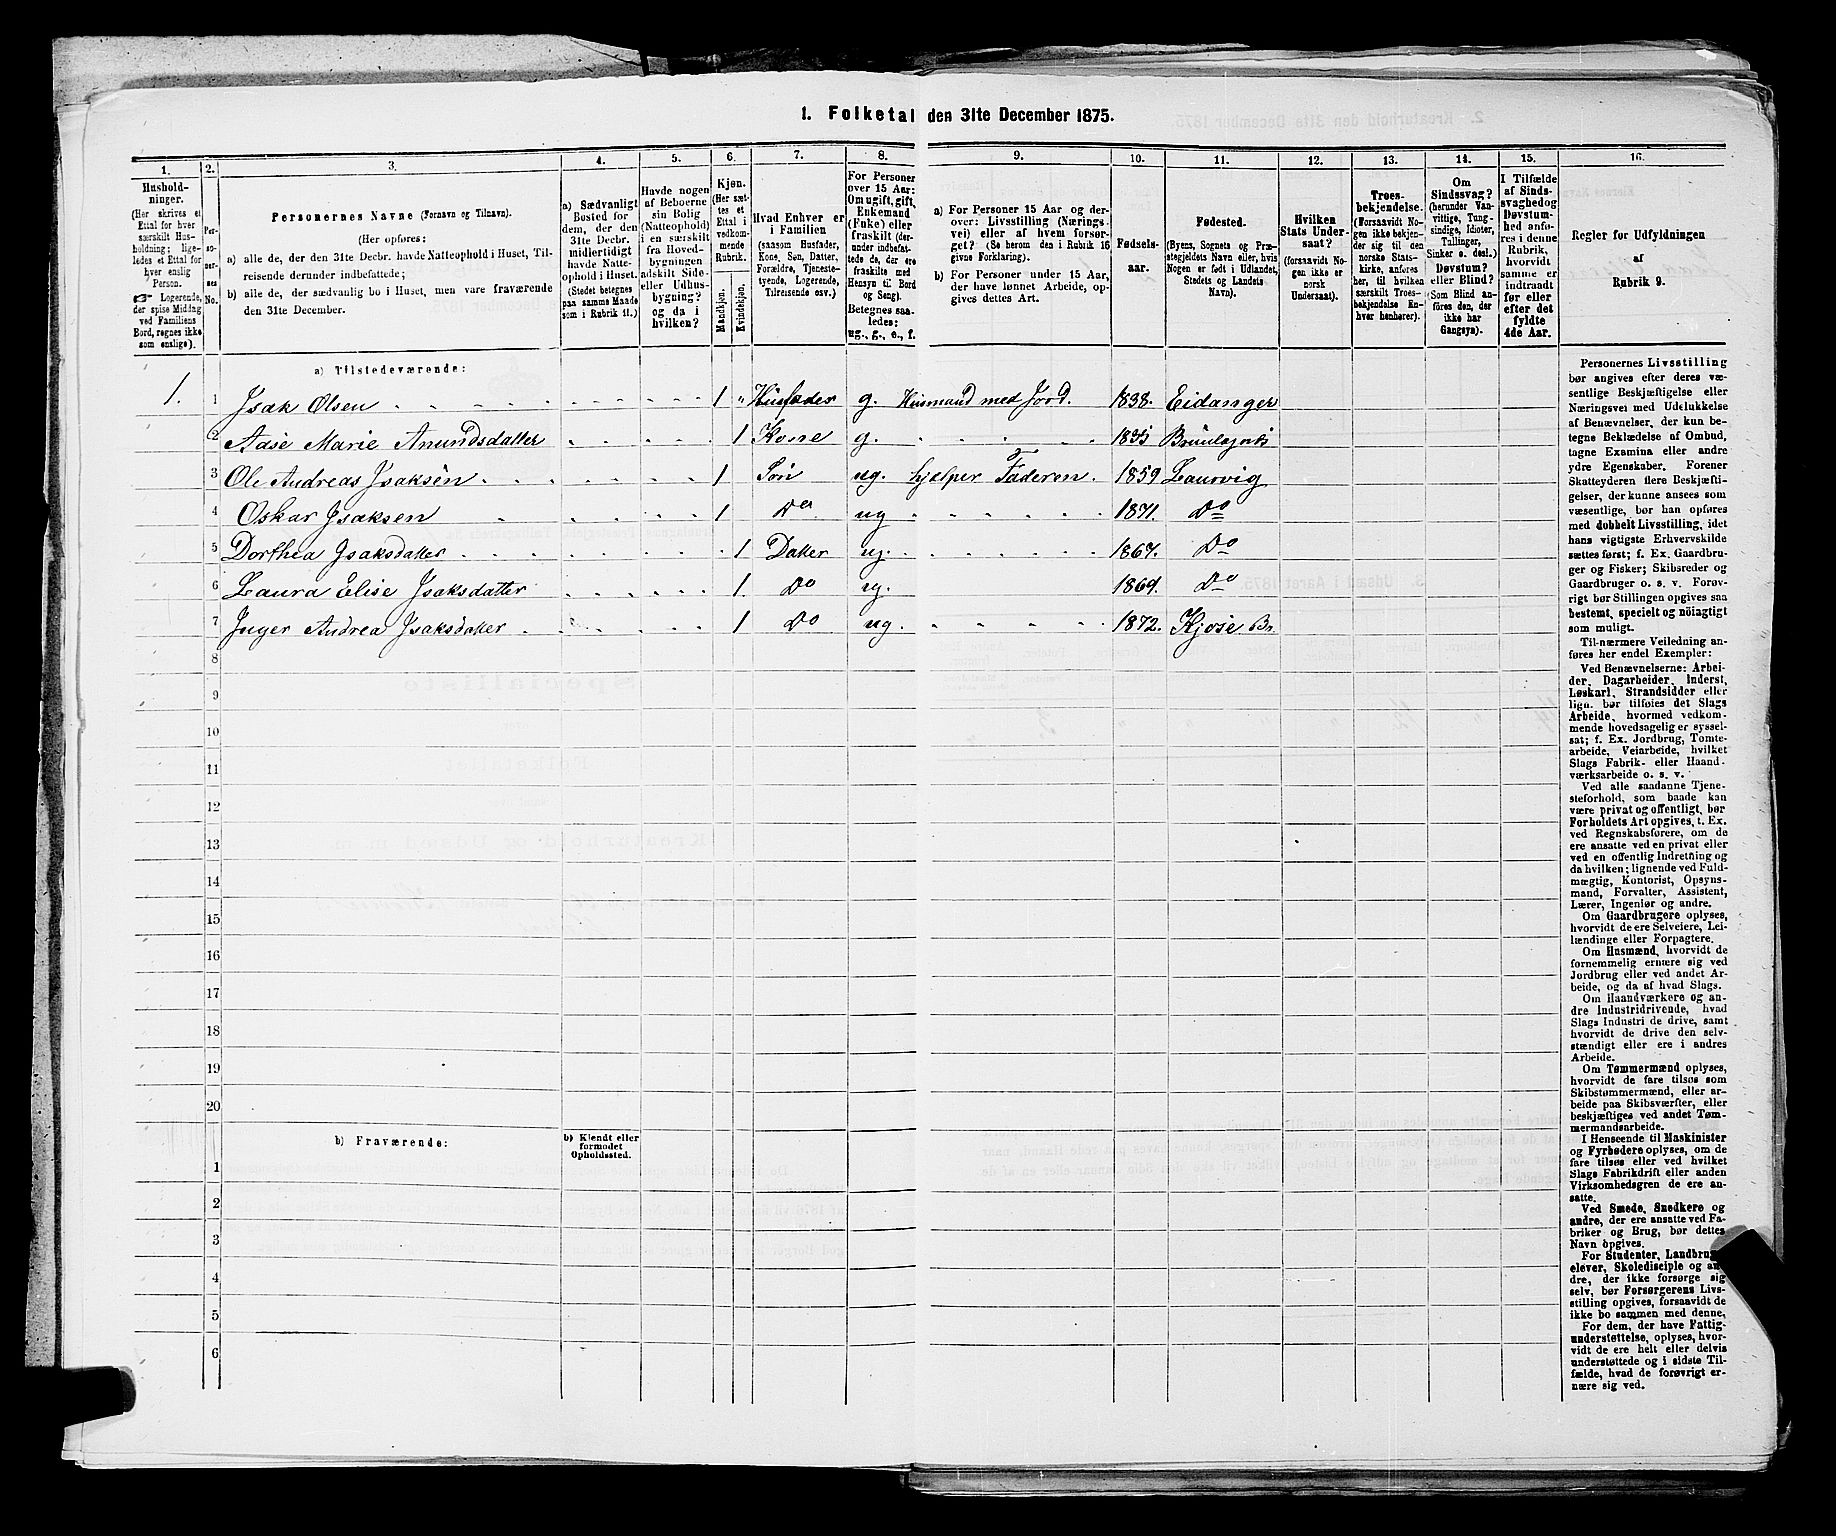 1. Folketal den 31te December 1875.
1.
2.
3.
4.
5.
6.
7.
8.
9.
10.
11.
12.
13.
14.
15.
16.
Hushold-
ninger.
(Her skrives et
Ettal for hver
særskilt Hus-
holdning; lige-
ledes et Ettal for
hver enslig
Person.
☞ Logerende,
der spise Middag
ved Familiens
Bord, regnes ikke
som enslige).
Per-
so-
ner-
nes
No.
Personernes Navne (Fornavn og Tilnavn).
(Her opføres:
a) alle de, der den 31te Decbr. havde Natteophold i Huset, Til-
reisende derunder indbefattede;
b) alle de, der sædvanlig bo i Huset, men vare fraværende
den 31te December.
a) Sædvanligt
Bosted for
dem, der den
31te Decbr.
midlertidigt
havde Natte-
ophold i Huset.
(Stedet betegnes
paa samme Maade
som i Rubrik 11.)
Havde nogen
af Beboerne
sin Bolig
(Natteophold)
i en særskilt
fra Hoved-
bygningen
adskilt Side-
eller Udhus-
bygning? og
da i hvilken?
Kjøn.
(Her sæt-
tes et
Ettal i
vedkom-
mende
Rubrik.
Mandkjøn.
Kvindekjøn.
Hvad Enhver er
i Familien
(saasom Husfader,
Kone, Søn, Datter,
Forældre, Tjeneste-
tyende, Logerende,
Tilreisende osv.)
For Personer
over 15 Aar:
Om ugift, gift,
Enkemand
(Enke) eller
fraskilt (der-
under indbefat-
tede de, der ere
fraskilte med
Hensyn til Bord
og Seng).
Betegnes saa-
ledes;
ug., g., e., f.
a) For Personer 15 Aar og der-
over: Livsstilling (Nærings-
vei) eller af hvem forsør-
get? (Se herom den i Rubrik 16
givne Forklaring).
b) For Personer under 15 Aar,
der have lønnet Arbeide, op-
gives dettes Art.
Fødsels-
aar.
Fødested.
(Byens, Sognets og Præ-
stegjeldets Navn eller, hvis
Nogen er født i Udlandet,
Stedets og Landets
Navn).
Hvilken
Stats Under-
saat?
(forsaavidt No-
gen ikke er
norsk
Undersaat).
Troes-
bekjendelse.
(Forsaavidt No-
gen ikke bekjen-
der sig til den
norske Stats-
kirke, anføres
her, til hvilken
særskilt Troes-
bekjendelse En-
hver henhører).
Om
Sindssvag?
(herunder Van-
vittige, Tung-
sindige, Idioter,
Tullinger,
Sinker o. desl.)
Døvstum?
eller Blind?
(Som Blind an-
føres den, der
ikke har
Gangsyn).
I Tilfælde
af Sinds-
svaghed og
Døvstum-
hed anfø-
res i denne
Rubrik,
hvorvidt
samme er
indtraadt
før eller
efter det
fyldte
4de Aar.
Regler for Udfyldningen
af
Rubrik 9.
a) Tilstedeværende:
1. 1 Isak Olsen 1 " Husfader g. Husmand med Jord. 1838. Eidanger
2 Aase Marie Amundsdatter 1 Kone g. Brunlagnæs
3 Ole Andreas Isaksen 1 Søn ug. hjælper Faderen. 1859 Laurvig
4 Oskar Isaksen 1 Do ug 1871. Do
5 Dorthea Isaksdatter 1 Datter ug. 1867. Do
6 Laura Elise Isaksdatter 1. Do ug. 1869. Do
7 Inger Andrea Isaksdatter 1 Do ug 1872. Kjose Br.
8
9
10
11
12
13
14
15
16
17
18
19
20
b) Fraværende:
b) Kjendt eller
formodet
Opholdssted.
1
2
3
4
5
6
Personernes Livsstilling
bør angives efter deres væ-
sentlige Beskjæftigelse eller
Næringsvei med Udelukkelse
af Benævnelser, der kun be-
tegne Beklædelse af Ombud,
tagne Examina eller andre
ydre Egenskaber. Forener
Skatteyderen flere Beskjæfti-
gelser, der kunne ansees som
væsentlige, bør han opføres
med dobbelt Livsstilling, idet
hans vigtigste Erhvervskilde
sættes først; f. Ex. Gaardbru-
ger og Fisker; Skibsreder og
Gaardbruger o. s. v. Forøv-
rigt bør Stillingen opgives saa
bestemt, specielt og nöiagtigt
som muligt.
Til nærmere Veiledning an-
føres her endel Exempler:
Ved Benævnelserne: Arbei-
der, Dagarbeider, Inderst,
Løskarl, Strandsidder eller
lign. bør tilføies det Slags
Arbeide, hvormed vedkom-
mende hovedsagelig er syssel-
sat; f. Ex. Jordbrug, Tomte-
arbeide, Veiarbeide, hvilket
Slags Fabrik- eller Haand-
værksarbeide o. s. v.
Ved alle saadanne Tjene-
steforhold, som baade kan
være privat og offentligt, bør
Forholdets Art opgives, t. Ex.
ved Regnskabsførere, om de
ere ansatte ved en privat eller
ved en offentlig Indretning og
da hvilken; lignende ved Fuld-
mægtig, Kontorist, Opsyns-
mand, Forvalter, Assistent,
Lærer, Ingeniør og andre.
Om Gaardbrugere oplyses,
hvorvidt de ere Selveiere, Lei-
lændinge eller Forpagtere.
Om Husmænd, hvorvidt de
fornemmelig ernære sig ved
Jordbrug eller ved andet Ar-
beide, og da af hvad Slags.
Om Haandværkere og an-
dre Industridrivende, hvad
Slags Industri de drive, samt
hvorvidt de drive den selv-
stændigt eller ere i andres
Arbeide.
Om Tømmermænd oplyses,
hvorvidt de fare tilsøs som
Skibstømmermænd, eller ar-
beide paa Skibsværfter, eller
beskjæftiges ved andet Tøm-
mermandsarbeide.
I Henseende til Maskinister
og Fyrbødere oplyses, om de
fare tilsøs eller ved hvilket
Slags Fabrikdrift eller anden
Virksomhedsgren de ere an-
satte.
Ved Smede, Snedkere og
andre, der ere ansatte ved Fa-
briker og Brug, bør dettes
Navn opgives.
For Studenter, Landbrugs-
elever, Skoledisciple og an-
dre, der ikke forsørge sig
selv, bør Forsørgerens Livs-
stilling opgives, forsaavidt de
ikke bo sammen med denne.
For dem, der have Fattig-
understøttelse, oplyses, hvor-
vidt de ere helt eller delvis
understøttede og i sidste Til-
fælde, hvad de forøvrigt er-
nære sig ved.